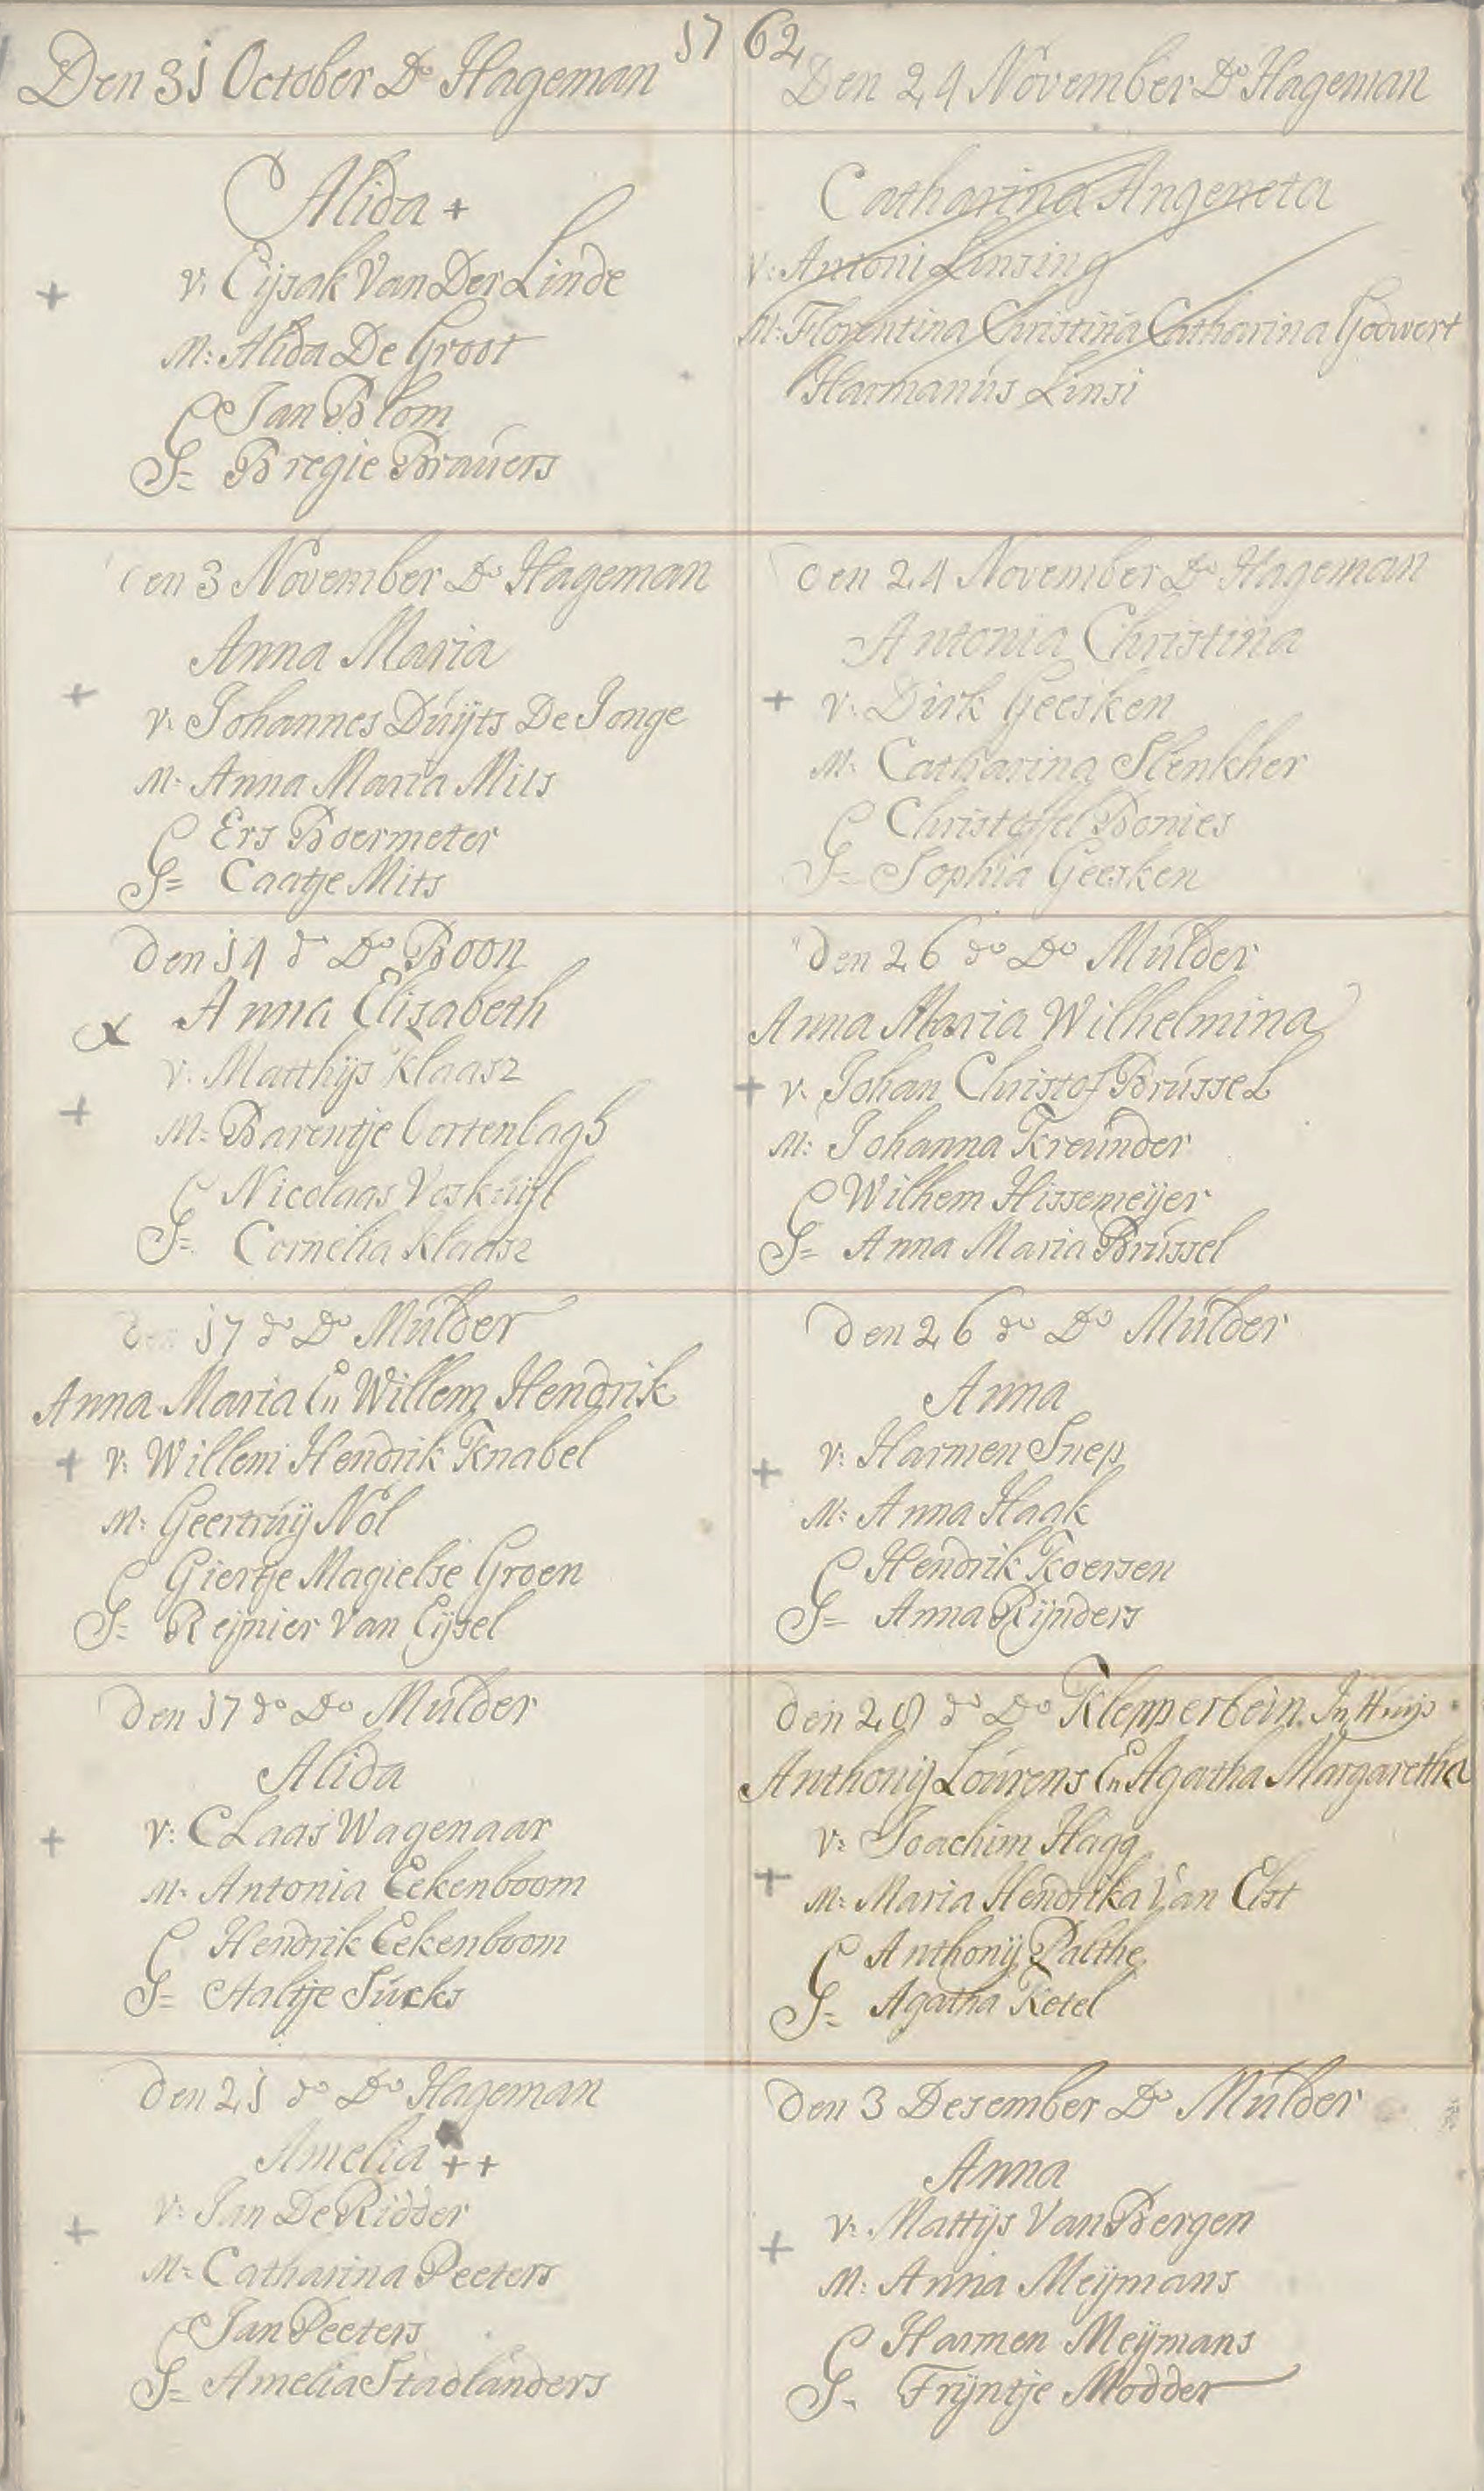 1762
Den 31 October Do Hageman
Alida +
+ v: Eijsak Van Der Linde
M: Alida De Groot
Jan Blom
G= Bregie Brauers
Den 3 November Do Hageman
Anna Maria
+ v: Johannes Duijts De Jonge
M: Anna Maria Mits
Ers Boermeter
G= Caatje Mits
Den 14 do Do Boon
x Anna Elisabeth
v: Matthijs Klaasz
+ M: Barentje Oortenlagh
Nicolaas Voskuijl
G= Cornelia Klaasz
Den 17 do Do Mulder
Anna Maria En Willem Hendrik
+ v: Willem Hendrik Knabel
M: Geertruij Nol
Giertje Magielse Groen
G= Reijnier Van Eijsel
Den 17 do Do Mulder
Alida
+ v: CLaas Wagenaar
M: Antonia Eekenboom
Hendrik Eekenboom
G= Aaltje Sucks
Den 21 do Do Hageman
Amelia ++
+ v: Jan De Ridder
M: Catharina Peeters
Jan Peeters
G= Amelia Stadlanders
Den 24 November Do Hageman
Catharina Angeneta
V: Antoni Linsing
M: Florentina Christina Catharina Godwert
Harmanus Linsi
Den 24 November Do Hageman
Antonia Christina
+ v: Dirk Geesken
M: Catharina Slenkher
Christoffel Bonies
G= Sophia Geesken
Den 26 do Do Mulder
Anna Maria Wilhelmina
+ v: Johan Christof BrusseL
M: Johanna Kreunder
Wilhem Hissemeijer
G= Anna Maria Brussel
Den 26 do Do Mulder
Anna
+ v: Harmen Snep
M: Anna Haak
Hendrik Koersen
G= Anna Rijnders
Den 28 do Do Klepperbein In Huijs
Anthonij Lourens En Agatha Margaretha
v: Joachim Hagg
+ M: Maria Hendrika Van Elst
Anthonij Palthe
G= Agatha Ketel
Den 3 Desember Do Mulder
Anna
+ v: Mattijs Van Bergen
M: Anna Meijmans
Harmen Meijmans
G= Trijntje Modder